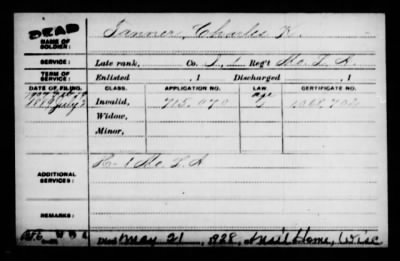 DEAD
NAME OF SOLDIER:
Tanner, Charles K.
SERVICE:
Late rank, Co. I, 1 Reg't Me. L. A.
TERM OF SERVICE:
Enlisted , 1 Discharged , 1
DATE OF FILING. CLASS. APPLICATION NO. LAW. CERTIFICATE NO.
1889 July 2 Invalid, 715,970
Widow,
Minor,
ADDITIONAL SERVICES:
Me. L. A
Died May 21, 1928, at Nat'l Home, Wisc